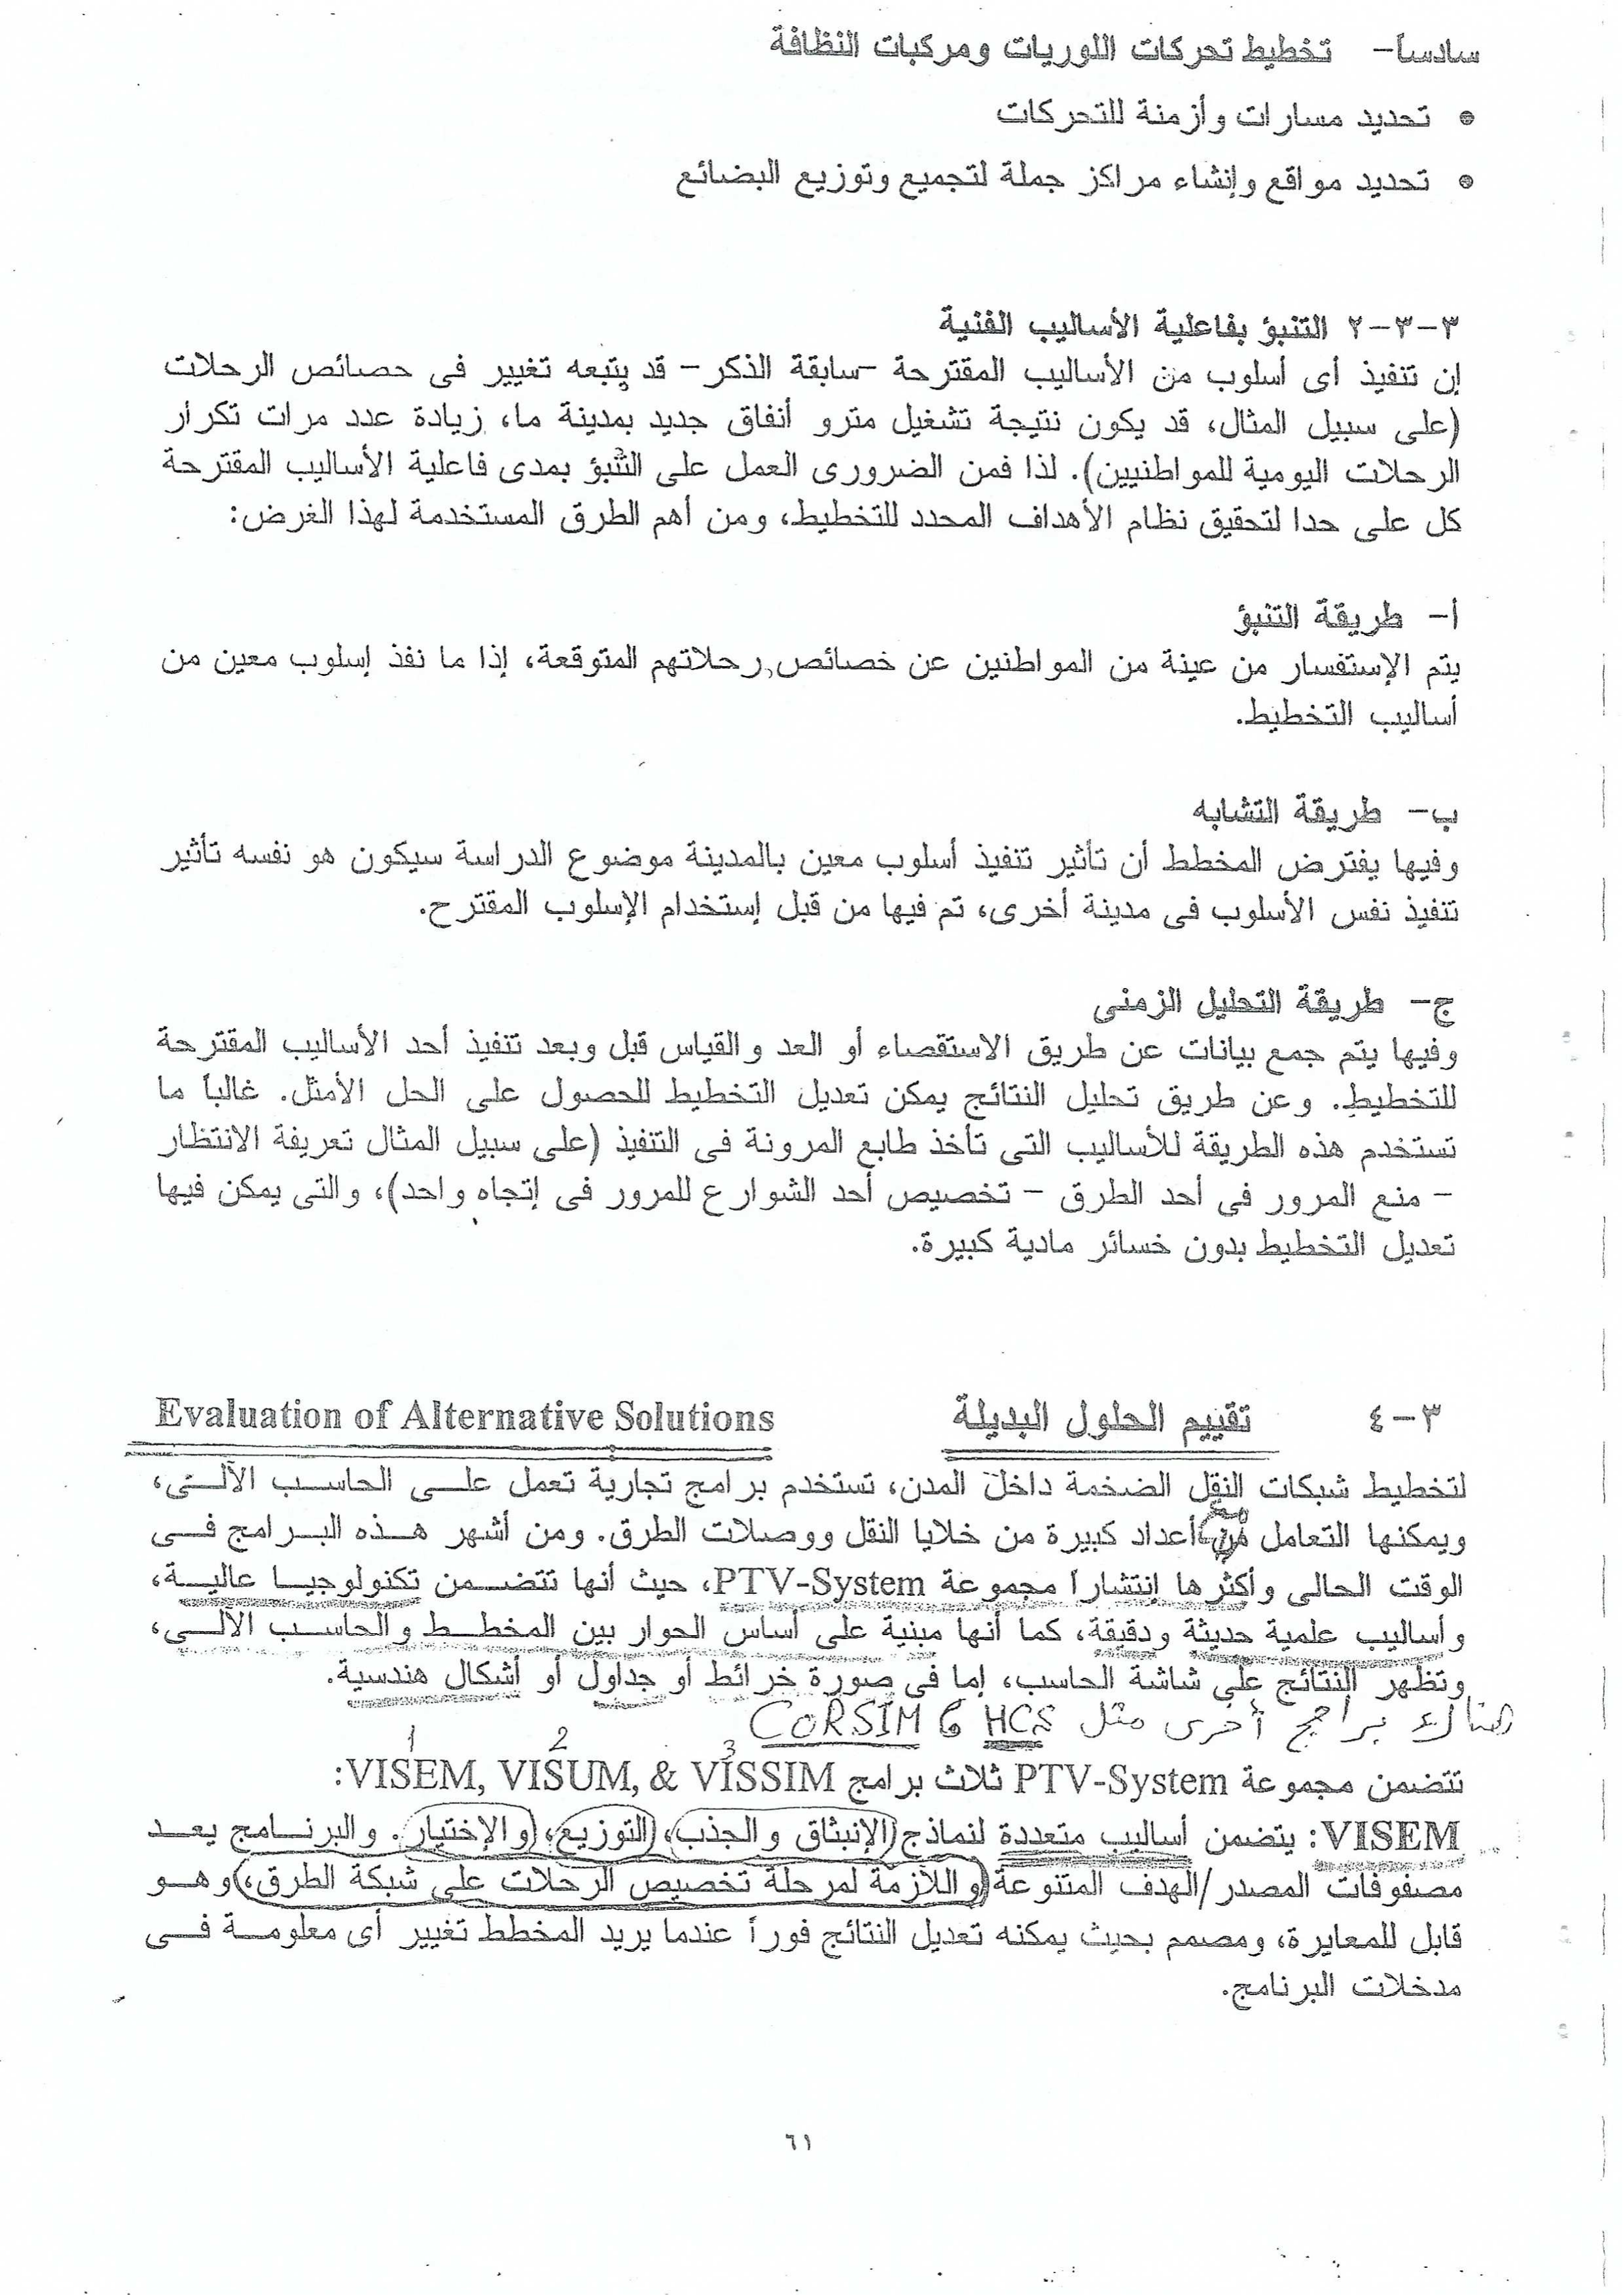 سادساً- تخطيط تحركات اللوريات ومركبات النظافة
• تحديد مسارات وأزمنة للتحركات
• تحديد مواقع وإنشاء مراكز جملة لتجميع وتوزيع البضائع
٣-٣-٢ التنبؤ بفاعلية الأساليب الفنية
إن تنفيذ أى أسلوب من الأساليب المقترحة -سابقة الذكر- قد يتبعه تغيير فى خصائص الرحلات
(على سبيل المثال، قد يكون نتيجة تشغيل مترو أنفاق جديد بمدينة ما، زيادة عدد مرات تكرار
الرحلات اليومية للمواطنيين). لذا فمن الضرورى العمل على التنبؤ بمدى فاعلية الأساليب المقترحة
كل على حدا لتحقيق نظام الأهداف المحدد للتخطيط، ومن أهم الطرق المستخدمة لهذا الغرض:
أ- طريقة التنبؤ
يتم الإستفسار من عينة من المواطنين عن خصائص رحلاتهم المتوقعة، إذا ما نفذ إسلوب معين من
أساليب التخطيط.
ب- طريقة التشابه
وفيها يفترض المخطط أن تأثير تنفيذ أسلوب معين بالمدينة موضوع الدراسة سيكون هو نفسه تأثير
تنفيذ نفس الأسلوب فى مدينة أخرى، تم فيها من قبل إستخدام الإسلوب المقترح.
ج- طريقة التحليل الزمنى
وفيها يتم جمع بيانات عن طريق الاستقصاء أو العد والقياس قبل وبعد تنفيذ أحد الأساليب المقترحة
للتخطيط. وعن طريق تحليل النتائج يمكن تعديل التخطيط للحصول على الحل الأمثل. غالباً ما
تستخدم هذه الطريقة للأساليب التى تأخذ طابع المرونة فى التنفيذ (على سبيل المثال تعريفة الانتظار
- منع المرور فى أحد الطرق - تخصيص أحد الشوارع للمرور فى إتجاه واحد)، والتى يمكن فيها
تعديل التخطيط بدون خسائر مادية كبيرة.
٣-٤ تقييم الحلول البديلة Evaluation of Alternative Solutions
لتخطيط شبكات النقل الضخمة داخل المدن، تستخدم برامج تجارية تعمل على الحاسب الآلى،
ويمكنها التعامل مع أعداد كبيرة من خلايا النقل ووصلات الطرق. ومن أشهر هذه البرامج فى
الوقت الحالى وأكثرها إنتشاراً مجموعة PTV-System، حيث أنها تتضمن تكنولوجيا عالية،
وأساليب علمية حديثة ودقيقة، كما أنها مبنية على أساس الحوار بين المخطط والحاسب الآلى،
وتظهر النتائج على شاشة الحاسب، إما فى صورة خرائط أو جداول أو أشكال هندسية.
هناك برامج أخرى مثل HCS و CORSIM
1 2 3
تتضمن مجموعة PTV-System ثلاث برامج VISEM, VISUM, & VISSIM:
VISEM: يتضمن أساليب متعددة لنماذج (الإنبثاق والجذب)، (التوزيع)، (والإختيار). والبرنامج يعد
مصفوفات المصدر/الهدف المتنوعة (واللازمة لمرحلة تخصيص الرحلات على شبكة الطرق،) وهو
قابل للمعايرة، ومصمم بحيث يمكنه تعديل النتائج فوراً عندما يريد المخطط تغيير أى معلومة فى
مدخلات البرنامج.
٦١